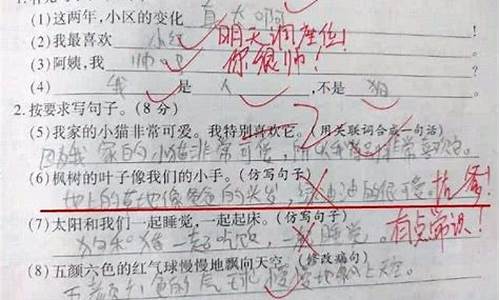 (1)这两年,小区的变化 真大啊
(2)我最喜欢 小红 明天调座位!
(3)阿姨,我 帅吗 你很帅!
(4) 我 是 人 ,不是 狗
2.按要求写句子。(8分)
(5)我家的小猫非常可爱。我特别喜欢它。(用关联词合成一句话)
因为我家的小猫非常可爱,所以我特别非常喜欢它。
(6)枫树的叶子像我们的小手。(仿写句子)
地上的草地像爸爸的头发,绿油油的很可爱。
(7)太阳和我们一起睡觉,一起起床。(仿写句子)
狗和猪一起吃饭,一起睡觉。 有点常识!
(8)五颜六色的红气球慢慢地飘向天空。(修改病句)